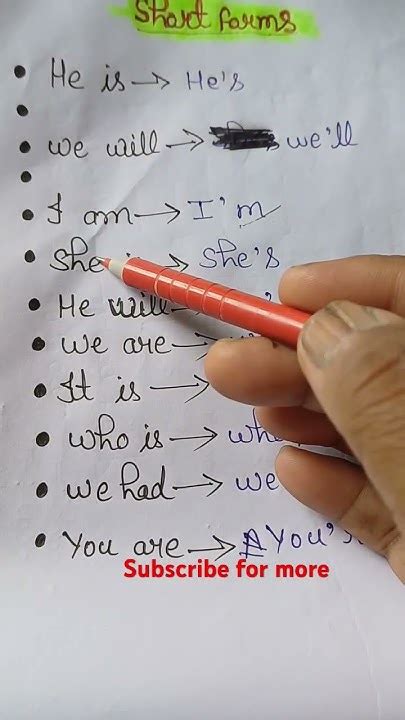 Short forms
He is → He's
we will → we'll
I am → I'm
She → She's
He will
we are →
It is →
who is → who
we had → we
You are → You'
Subscribe for more